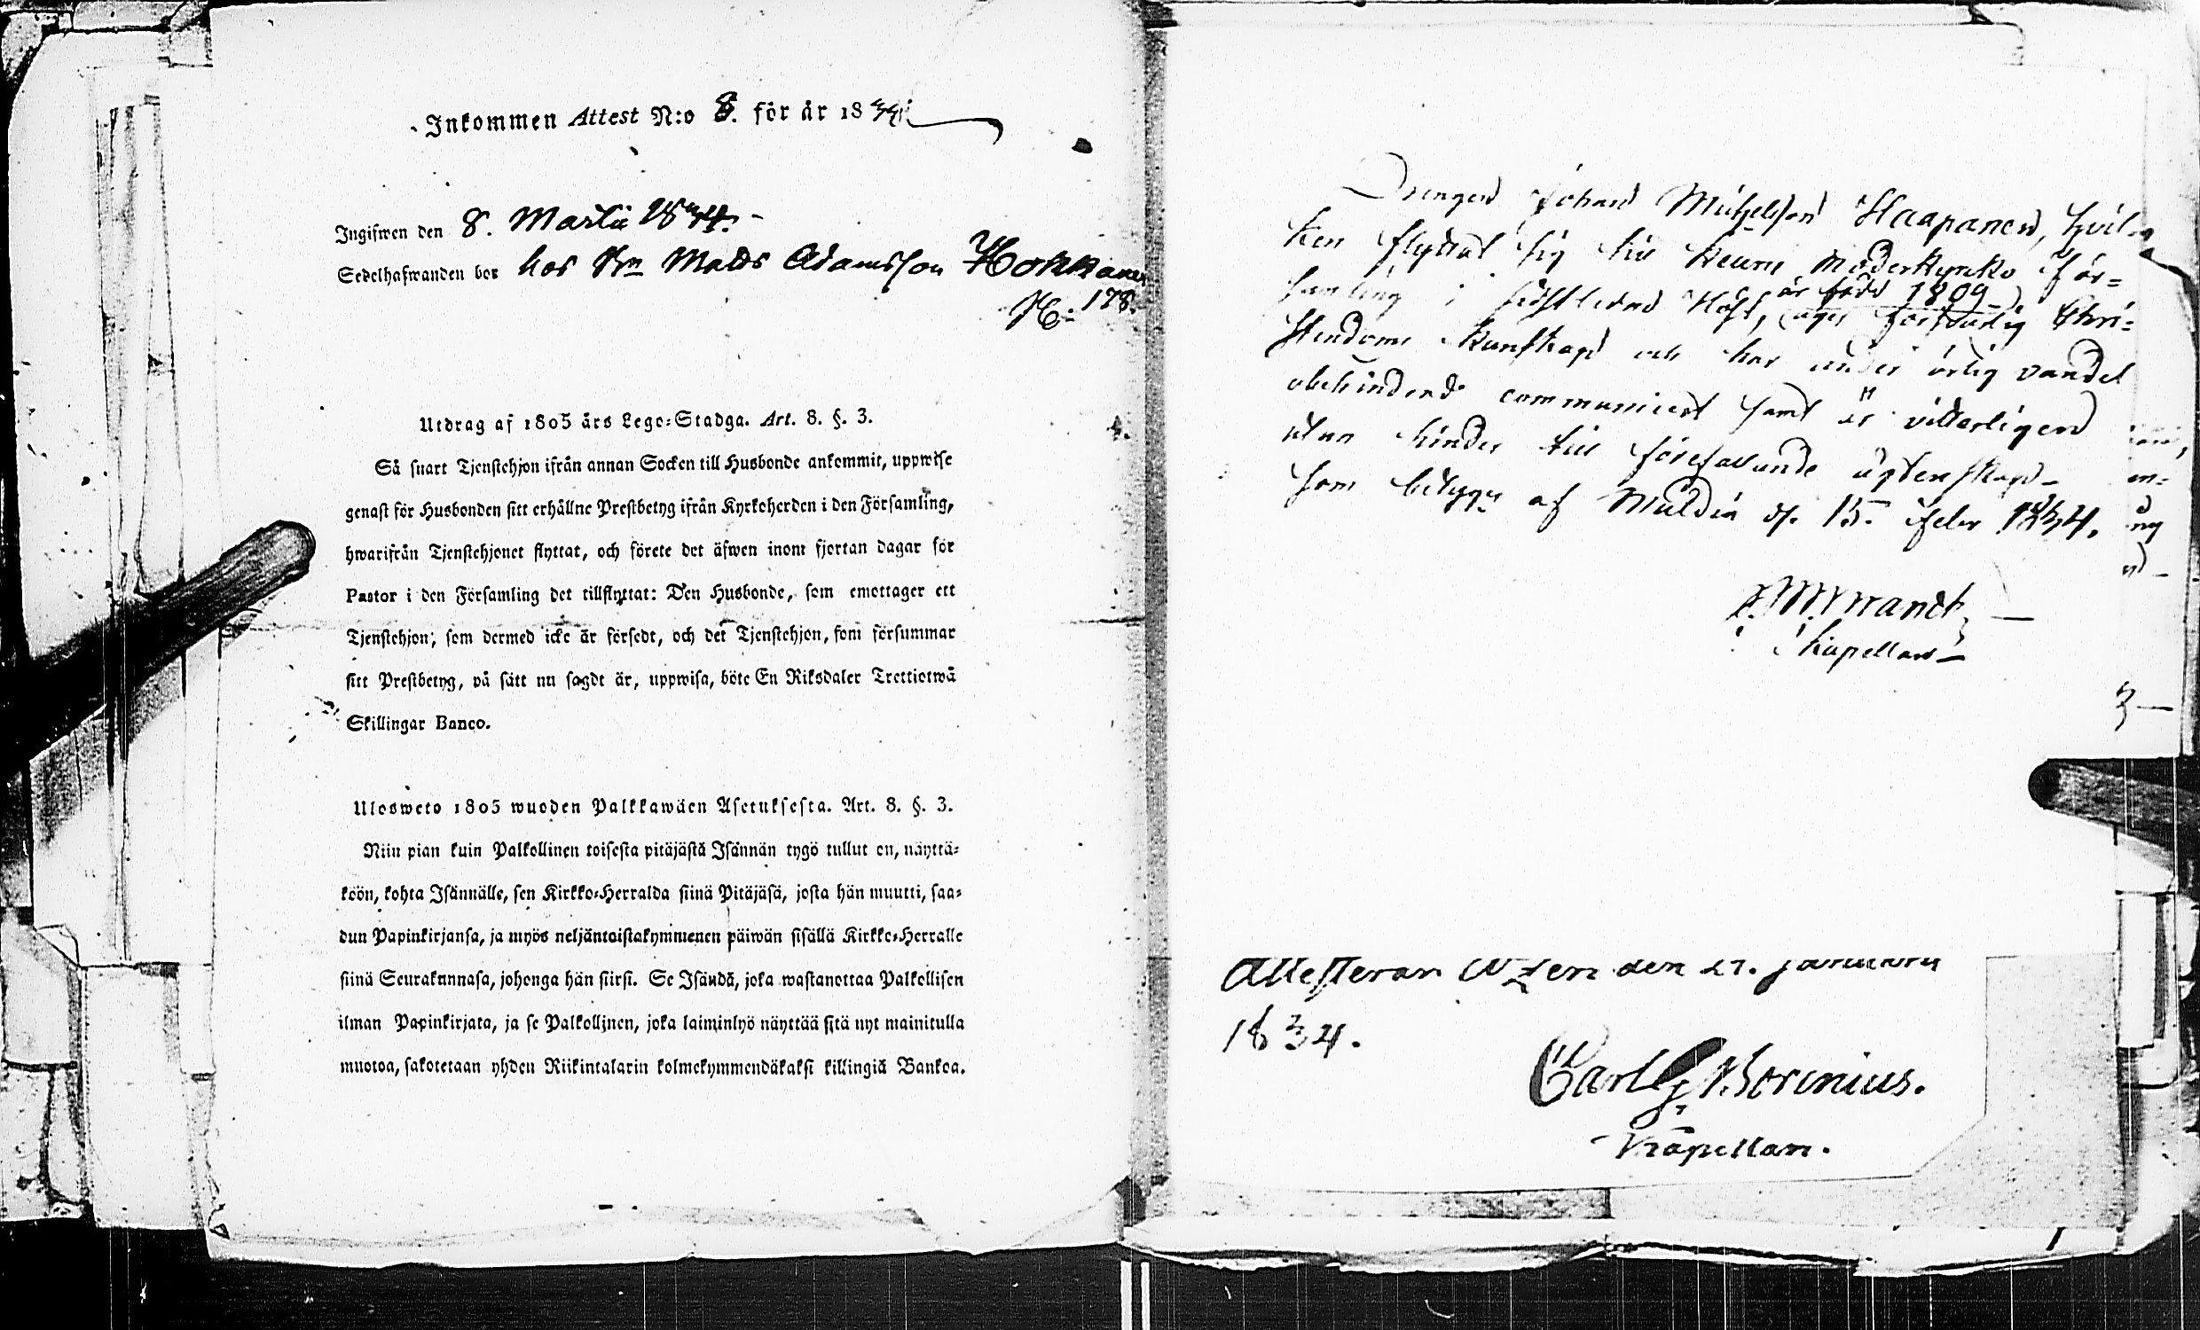 Inkommen Attest N:o 8. för år 1834
Ingifwen den 8. Martii 1834.
Sedelhafwanden bor hos Bn Matts Adamsson Hokkanen
N:o 178.
Utdrag af 1805 års Lego-Stadga. Art. 8. §. 3.
Så snart Tjenstehjon ifrån annan Socken till Husbonde ankommit, uppwise
genast för Husbonden sitt erhållne Prestbetyg ifrån Kyrkoherden i den Församling,
hwarifrån Tjenstehjonet flyttat, och förete det äfwen inom fjortan dagar för
Pastor i den Församling det tillflyttat: Den Husbonde, som emottager ett
Tjenstehjon, som dermed icke är försedt, och det Tjenstehjon, som försummar
sitt Prestbetyg, på sätt nu sagdt är, uppwisa, böte En Riksdaler Trettiotwå
Skillingar Banco.
Ulosweto 1805 wuoden Palkkawäen Asetuksesta. Art. 8. §. 3.
Niin pian kuin Palkollinen toisesta pitäjästä Isännän tygö tullut on, näyttä-
köön, kohta Isännälle, sen Kirkko-Herralda siinä Pitäjäsä, josta hän muutti, saa-
dun Papinkirjansa, ja myös neljäntoistakymmenen päiwän sisällä Kirkko-Herralle
siinä Seurakunnasa, johonga hän siirsi. Se Isändä, joka wastanottaa Palkollisen
ilman Papinkirjata, ja se Palkollinen, joka laiminlyö näyttää sitä nyt mainitulla
muotoa, sakotetaan yhden Riikintalarin kolmekymmendäkaksi killingiä Bankoa.
Drengen Johan Michelsson Haapanen, hvil-
ken flyttat sig till Keuru Moderkyrko För-
samling i sistledne Höst, är född 1809, äger försvarlig Chri-
stendoms kunskap och har under ärlig vandel
obehindrad communicerat samt är vitterligen
utan hinder till förefallande ägtenskap
som betygar af Muldia d. 15. Febr 1834.
Kapellan
Attesteras den 21. Januarii
1834.
Carl G. Borenius.
Kapellan.